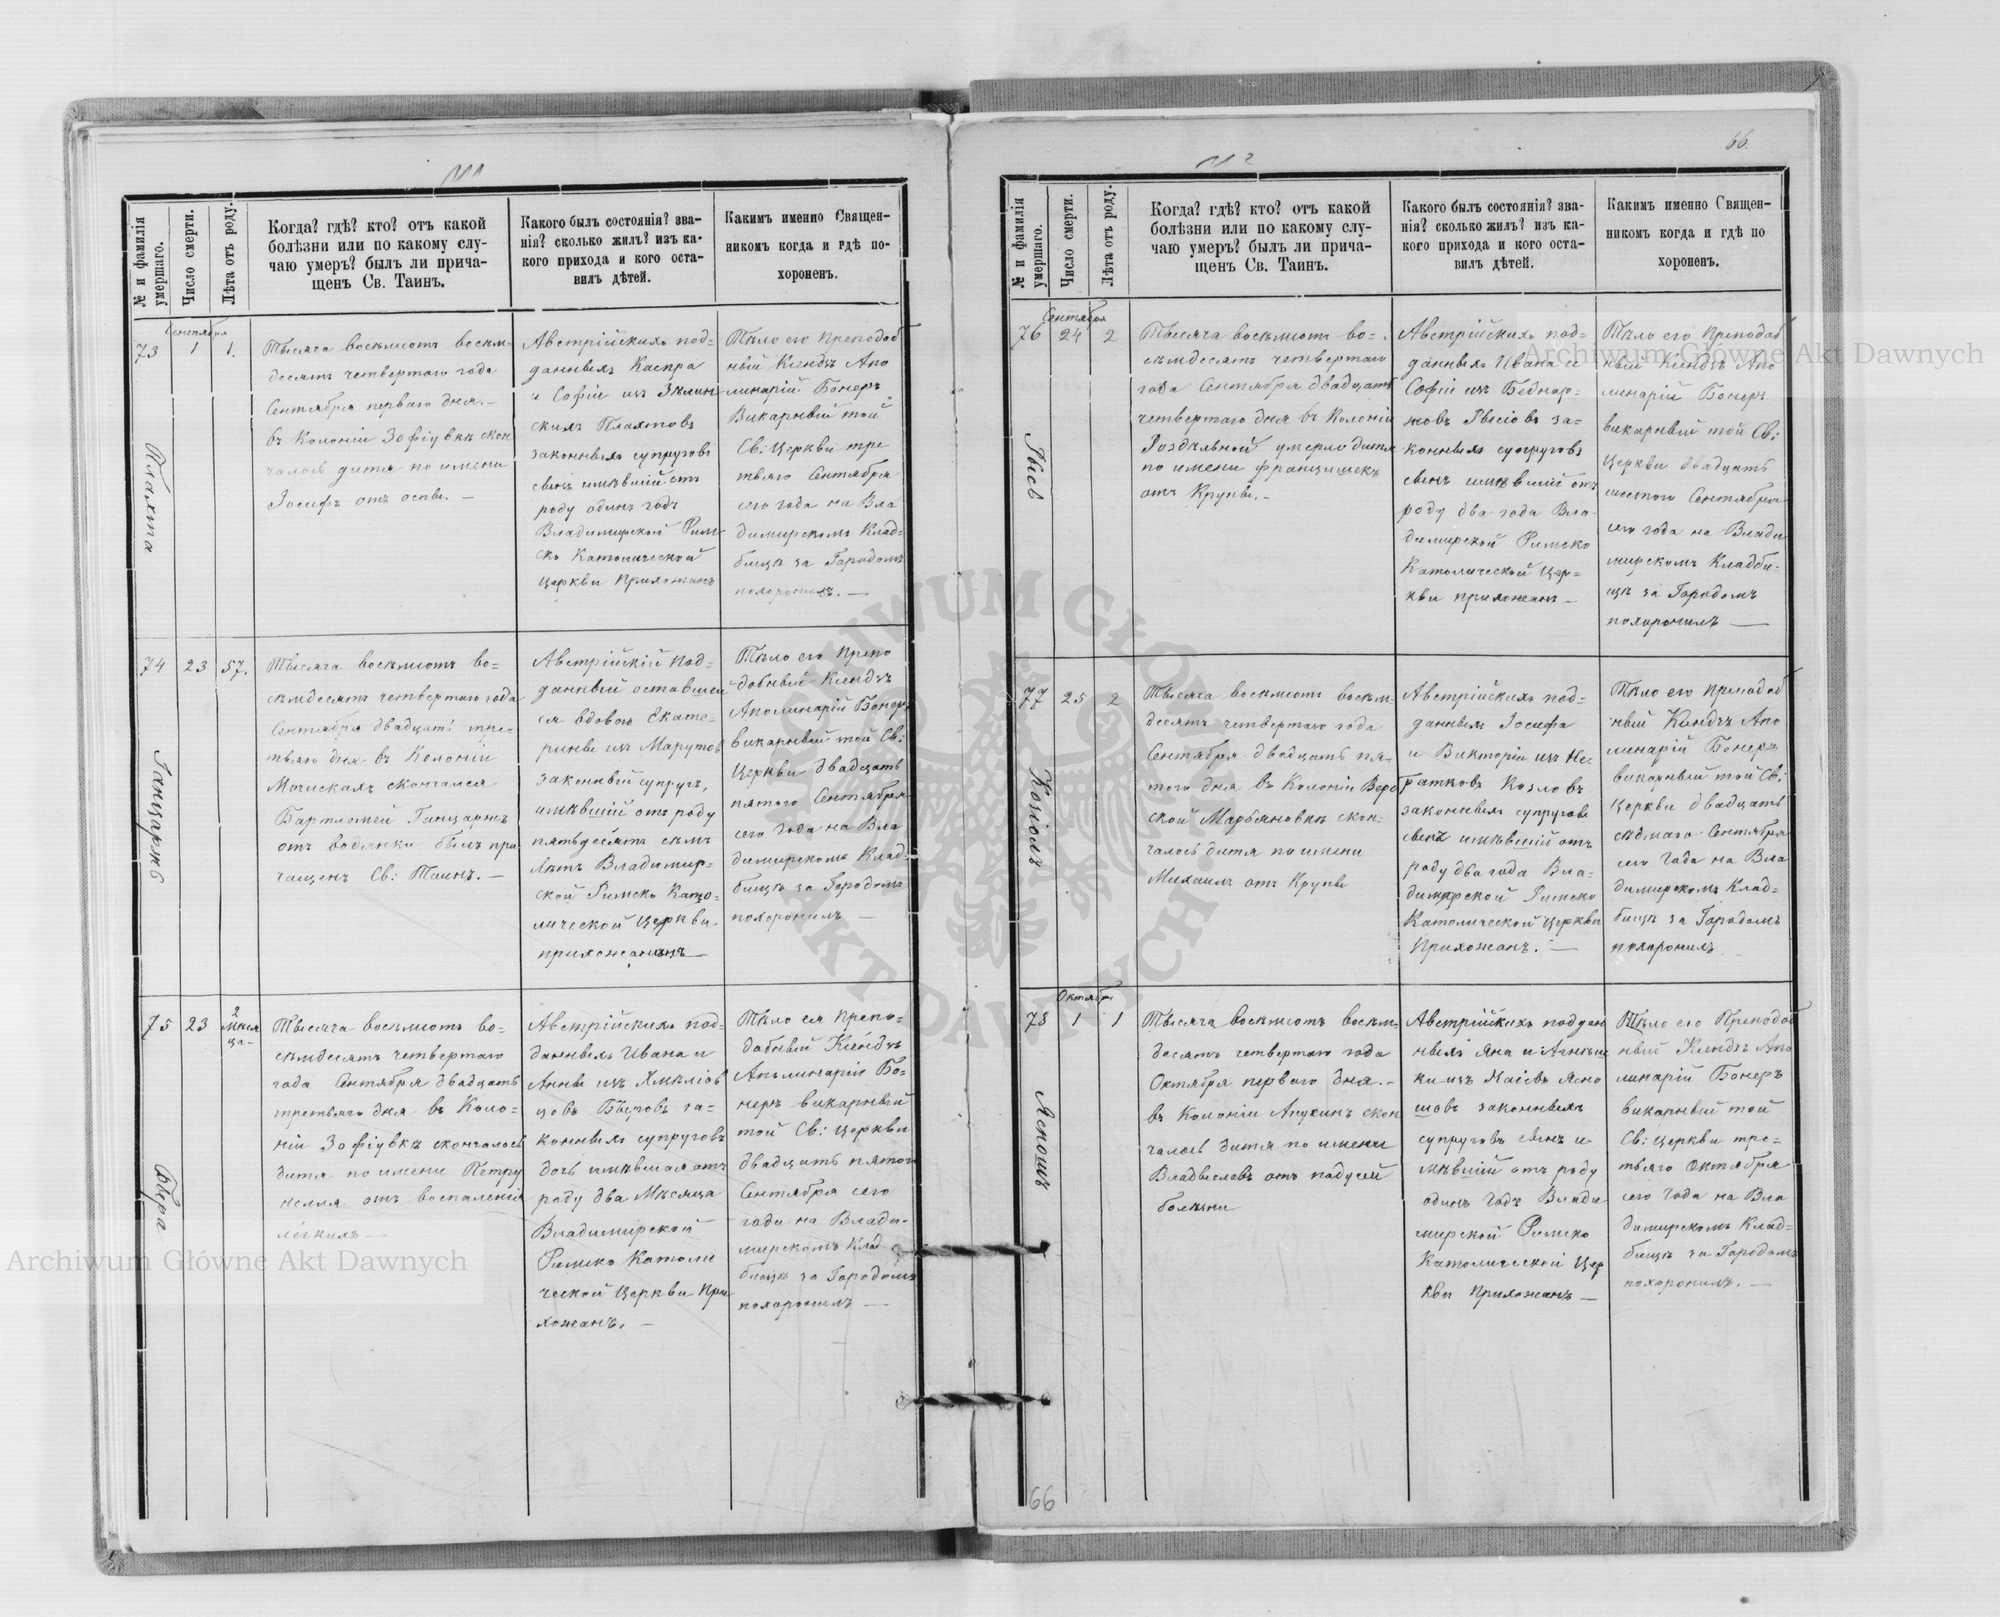 111
№ и фамилія умершаго.
Число смерти.
Лѣта отъ роду.
Когда? гдѣ? кто? отъ какой
болѣзни или по какому слу-
чаю умеръ? былъ ли прича-
щенъ Св. Таинъ.
Какого былъ состоянія? зва-
нія? сколько жилъ? изъ ка-
кого прихода и кого оста-
вилъ дѣтей.
Какимъ именно Священ-
никомъ когда и гдѣ по-
хороненъ.
Сентября
73 1 1.
Плахта
Тысяча восемьсотъ восем-
десятъ четвертаго года
Сентября перваго дня.—
въ Колоніи Зофіувкѣ скон
чалось дитя по имени
Іосифъ отъ оспы.—
Австрійскихъ под-
данныхъ Каспра
и Софіи изъ
скихъ Плахтовъ
законныхъ супруговъ
сынъ имѣвшій отъ
роду одинъ годъ
Владимирской Рим-
ско Католической
Церкви Прихожанъ
Тѣло его Преподоб
ный Ксендзъ Апо
линарій Бонеръ
Викарный той
Св: Церкви тре
тьяго Сентября
сего года на Вла
димирскомъ Клад-
бищѣ за Городомъ
похоронилъ.—
74 23 57.
Ганцаржъ
Тысяча восемьсотъ во-
семдесятъ четвертаго года
Сентября двадцать тре-
тьяго дня въ Колоніи
Мочискахъ скончался
Бартломей Ганцаржъ
отъ водянки былъ при
чащенъ Св: Таинъ.—
Австрійскій под-
данный оставшей
ся вдовою Екате-
рины изъ Марутов
законный супругъ,
имѣвшій отъ роду
пятьдесятъ семь
лѣтъ Владимир-
ской Римско Като-
лической Церкви
прихожанинъ—
Тѣло его Препо
добный Ксендзъ
Аполинарій Бонеръ
викарный той Св:
Церкви двадцать
пятого Сентября
сего года на Вла
димирскомъ Клад-
бищѣ за Городомъ
похоронилъ—
75 23 2
Мѣся
ца—
Тысяча восемьсотъ во-
семдесятъ четвертаго
года Сентября двадцать
третьяго дня въ Коло-
ніи Зофіувкѣ скончалось
дитя по имени Петру
нелля отъ воспаленія
лёгкихъ—
Австрійскихъ под-
данныхъ Ивана и
Анны изъ
цовъ за-
конныхъ супруговъ
дочь имѣвшая отъ
роду два Мѣсяца
Владимирской
Римско Католи
ческой Церкви При
хожанъ.—
Тѣло ея Препо-
добный Ксендзъ
Аполинарій Бо-
неръ викарный
той Св: Церкви
двадцать пятого
Сентября сего
года на Влади-
мирскомъ Клад
бищѣ за Городомъ
похоронилъ—
112
66.
№ и фамилія умершаго.
Число смерти.
Лѣта отъ роду.
Когда? гдѣ? кто? отъ какой
болѣзни или по какому слу-
чаю умеръ? былъ ли прича-
щенъ Св. Таинъ.
Какого былъ состоянія? зва-
нія? сколько жилъ? изъ ка-
кого прихода и кого оста-
вилъ дѣтей.
Какимъ именно Священ-
никомъ когда и гдѣ по
хороненъ.
Сентября
76 24 2
Тысяча восемьсотъ во-
семдесятъ четвертаго
года Сентября двадцать
четвертаго дня въ Колоніи
Роздальной умерло дитя
по имени францишекъ
отъ Крупы.—
Австрійскихъ под-
данныхъ Ивана и
Софіи изъ Беднар-
жовъ за-
конныхъ супруговъ
сынъ имѣвшій отъ
роду два года Вла-
димирской Римско
Католической Цер-
кви прихожанъ—
Тѣло его Преподоб
ный Ксендзъ Апо
линарій Бонеръ
викарный той Св:
Церкви двадцать
шестого Сентября
сего года на Влади
мирскомъ Кладби-
щѣ за Городомъ
похоронилъ—
77 25 2
Козіолъ
Тысяча восемьсотъ восем-
десятъ четвертаго года
Сентября двадцать пя-
того дня въ Колоніи Верб
ской Марьяновкѣ скон-
чалось дитя по имени
Михаилъ отъ Крупы
Австрійскихъ под-
данныхъ Іосифа
и Викторіи изъ Не-
ратковъ Козловъ
законныхъ супруговъ
сынъ имѣвшій отъ
роду два года Вла-
димирской Римско
Католической Церкви
Прихожанъ.—
Тѣло его Преподоб
ный Ксендзъ Апо
линарій Бонеръ
викарный той Св:
Церкви двадцать
седмаго Сентября
сего Года на Вла
димирскомъ Клад-
бищѣ за Городомъ
похоронилъ
Октября
78 1 1
Ясношъ
Тысяча восемьсотъ восем-
десятъ четвертаго года
Октября перваго дня.—
въ Колоніи Апухинъ скон
чалось дитя по имени
Владыславъ отъ падучей
болѣзни
Австрійскихъ поддан
ныхъ Яна и Агнѣш
ки изъ Ясно
шовъ законныхъ
супруговъ сынъ и-
мѣвшій отъ роду
одинъ годъ Влади
мирской Римско
Католической Цер
кви Прихожанъ—
Тѣло его Преподоб
ный Ксендзъ Апо
линарій Бонеръ
викарный той
Св: Церкви тре-
тьяго Октября
сего Года на Вла
димирскомъ Клад-
бищѣ за Городомъ
похоронилъ.—
66
Archiwum Główne Akt Dawnych
Archiwum Główne Akt Dawnych
ARCHIWUM GŁÓWNE AKT DAWNYCH